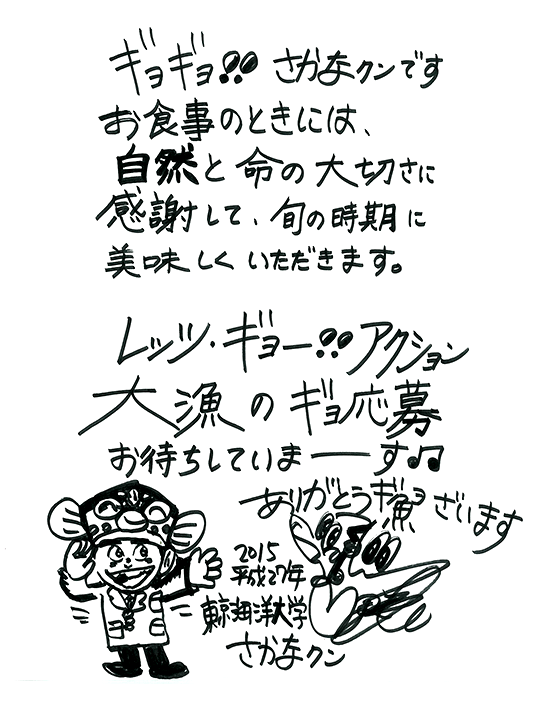 ギョギョ!! さかなクンです
お食事のときには、
自然と命の大切さに
感謝して、旬の時期に
美味しくいただきます。
レッツ・ギョー!! アクション
大漁のギョ応募
お待ちしていまーーす♫
ありがとうギ魚ョざいます
2015
平成27年
東京海洋大学
さかなクン